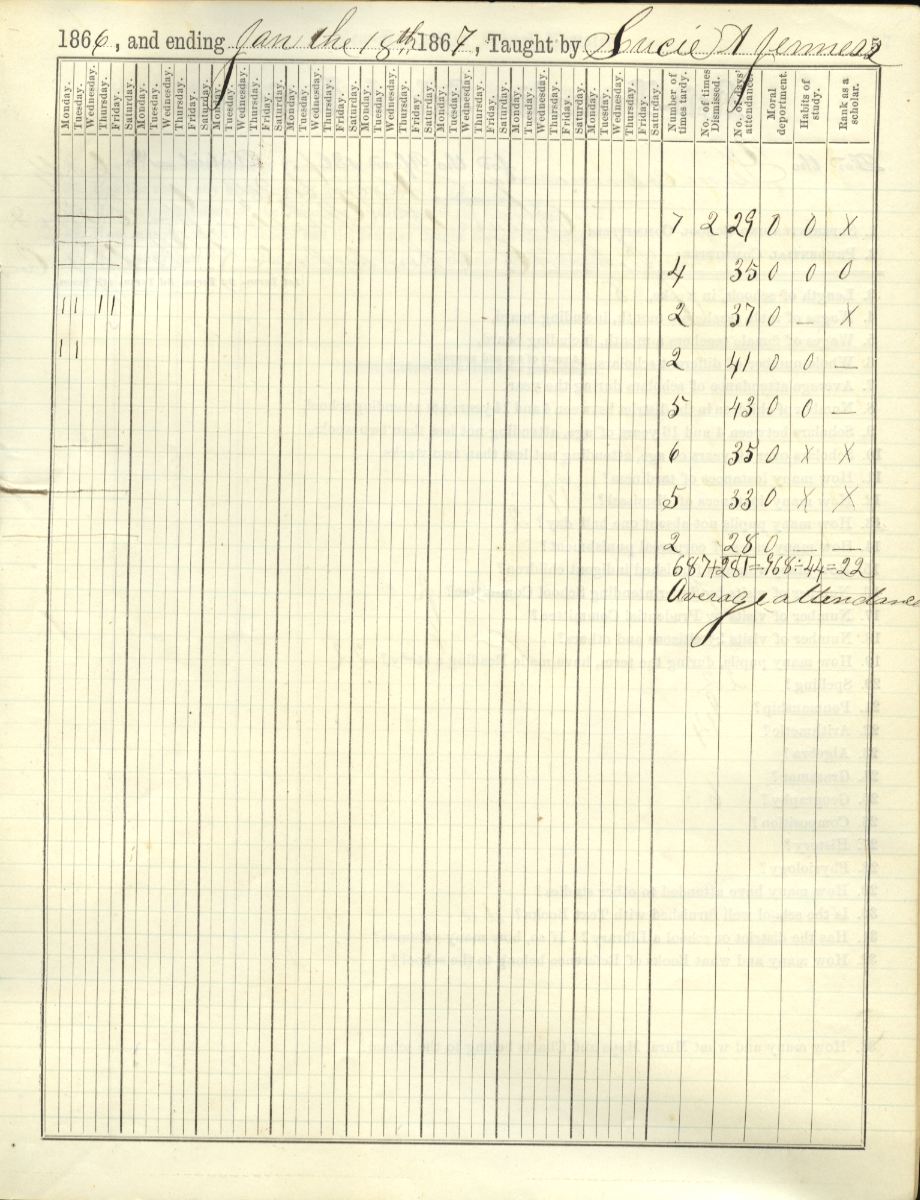 1866, and ending Jan the 18th 1867, Taught by Lucie A Jenness
5
Monday. Tuesday. Wednesday. Thursday. Friday. Saturday. Monday. Tuesday. Wednesday. Thursday. Friday. Saturday. Monday. Tuesday. Wednesday. Thursday. Friday. Saturday. Monday. Tuesday. Wednesday. Thursday. Friday. Saturday. Monday. Tuesday. Wednesday. Thursday. Friday. Saturday. Monday. Tuesday. Wednesday. Thursday. Friday. Saturday. Monday. Tuesday. Wednesday. Thursday. Friday. Saturday. Monday. Tuesday. Wednesday. Thursday. Friday. Saturday. Number of times tardy. No. of times Dismissed. No. of days' attendance. Moral deportment. Habits of study. Rank as a scholar.
7 2 29 0 0 X
4 35 0 0 0
11 11 2 37 0 — X
11 2 41 0 0 —
5 43 0 0 —
6 35 0 X X
5 33 0 X X
2 28 0 — —
687+281=968÷44=22
Average attendance